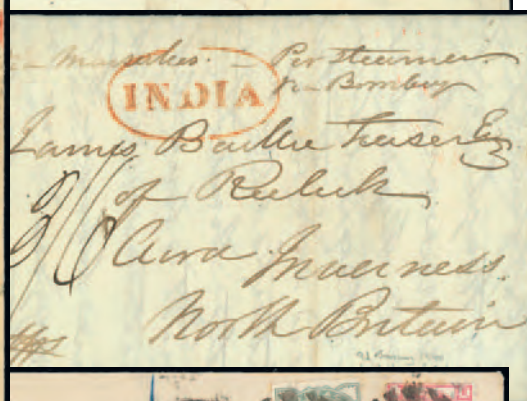 Marseilles. – Per Steamer
via Bombay
INDIA
James Baillie Fraser Esq
of Reelick
Inverness
North Britain